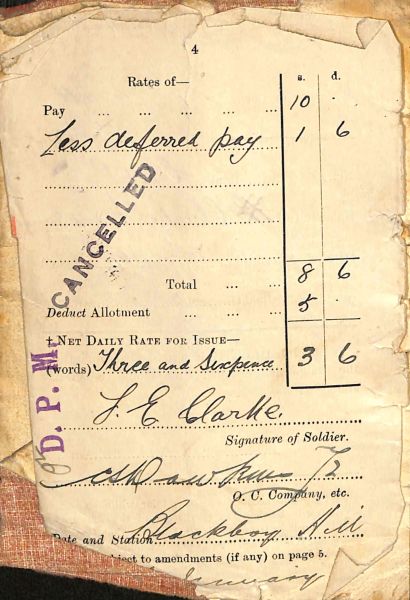 4
Rates of— s. d.
Pay ... ... ... ... ... 10 .
Less deferred pay 1 6
CANCELLED
Total ... ... 8 6
Deduct Allotment ... ... ... 5 .
† NET DAILY RATE FOR ISSUE—
(words) Three and Sixpence 3 6
D. P. M.
L. E Clarke.
Signature of Soldier.
O. C. Company, etc.
Date and Station Blackboy Hill
to amendments (if any) on page 5.